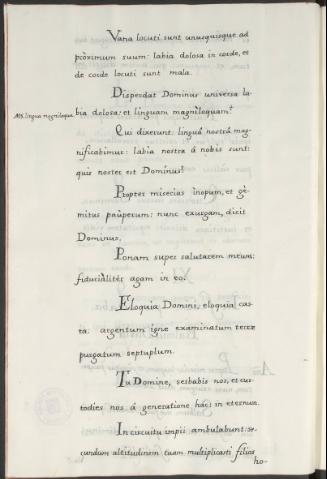 Vana locuti sunt unusquisque ad
pròximum suum: labia dolosa in corde, et
de corde locuti sunt mala.
Disperdat Dominus universa la-
bia dolosa: et linguam magnìloquam.
Qui dixerunt: linguā nostrā mag-
nificabimus: labia nostra à nobis sunt:
quis noster est Dominus?
Propter miserias ìnopum, et gè-
mitus paùperum: nunc exurgam, dicit
Dominus.
Ponam super salutarem meum:
fiducialitèr agam in eo.
Eloquia Domini, eloquia cas-
ta: argentum igne examinatum terræ
purgatum septuplum.
Tu Domine, serbabis nos, et cus-
todies nos à generatione hac: in eternum.
In circuitu impii ambulabunt: se-
cundum altitudinem tuam multiplicasti filios
ho-